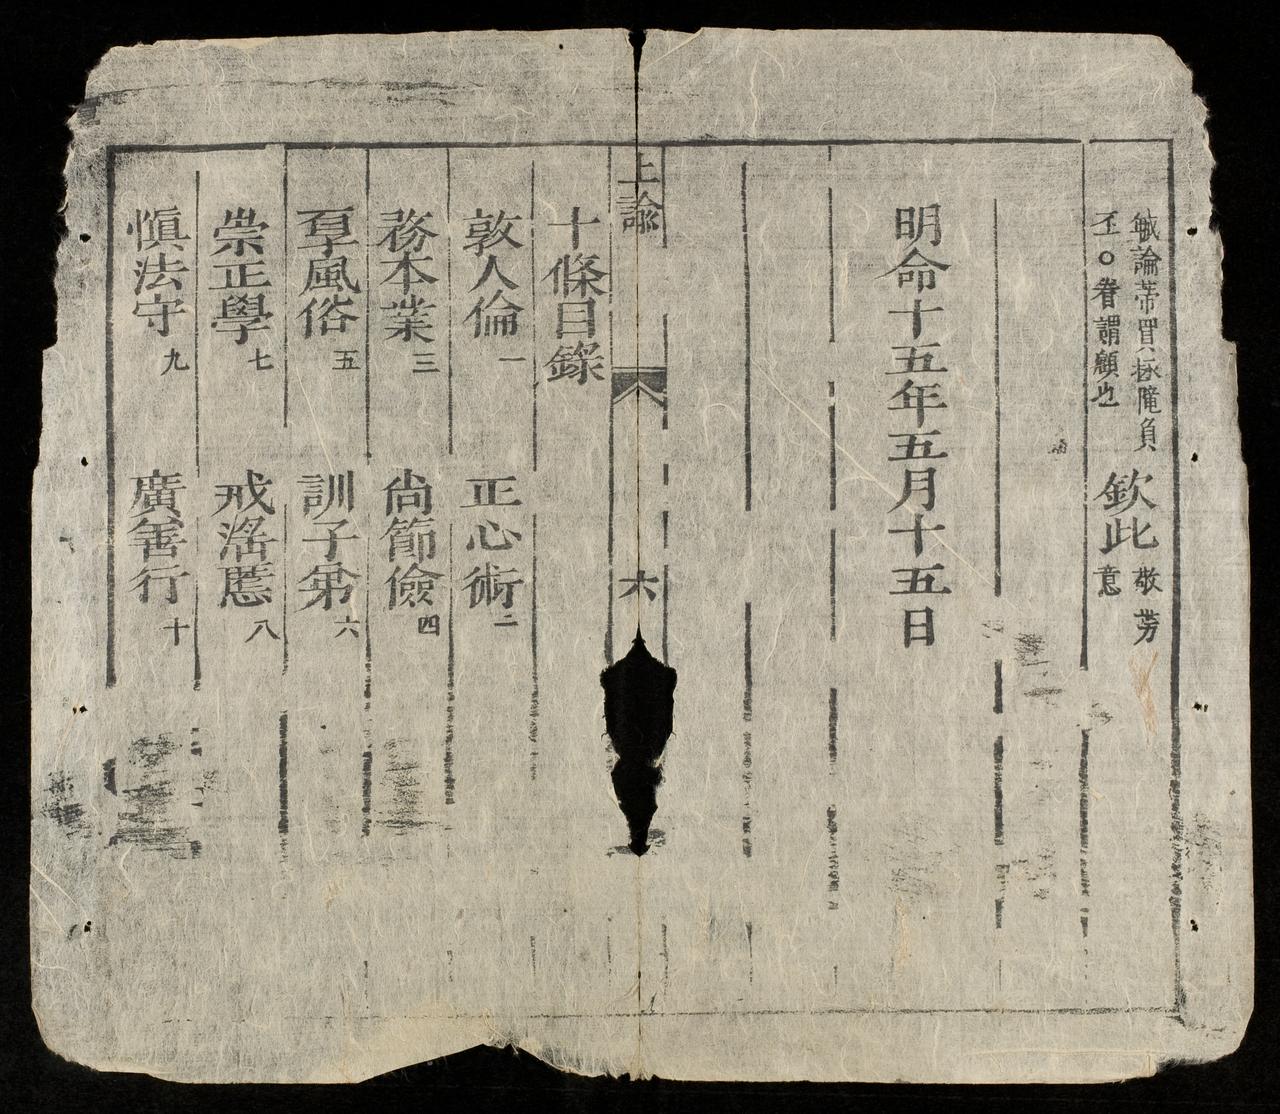 論蒂買負
丕○眷謂顧也
欽此
敬芳
意
明命十五年五月十五日
上諭
六
十條目錄
敦人倫一 正心術二
務本業三 尚節儉四
厚風俗五 訓子弟六
崇正學七 戒滛慝八
愼法守九 廣善行十